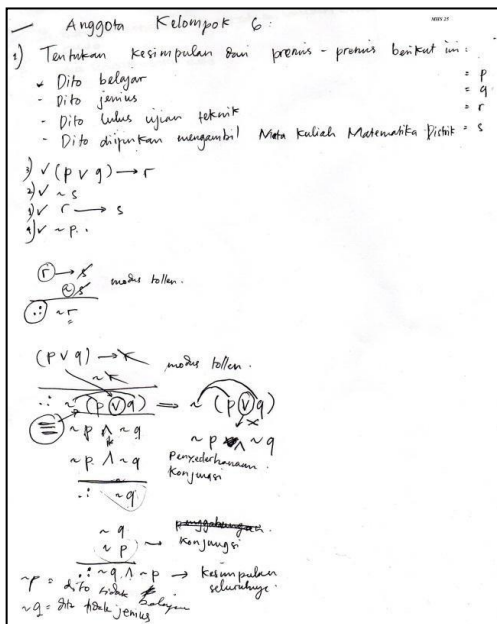 Anggota Kelompok 6.
MHS 25
1) Tentukan kesimpulan dari premis-premis berikut ini:
- Dito belajar = p
- Dito jenius = q
- Dito lulus ujian teknik = r
- Dito diijinkan mengambil Mata Kuliah Matematika Diskrit = s
3) ✓ (p ∨ q) → r
2) ✓ ~s
1) ✓ r → s
4) ✓ ~p.
r → s
~s modus tollen.
∴ ~r
(p ∨ q) → r
~r modus tollen.
∴ ~(p ∨ q) ⇒ ~(p ∨ q)
≡ ~p ∧ ~q ~p ∧ ~q
~p ∧ ~q Penyederhanaan Konjungsi
∴ ~q
~q penggabungan
~p → Konjungsi
∴ ~q ∧ ~p → kesimpulan seluruhnya.
~p = dito tidak belajar
~q = dito tidak jenius